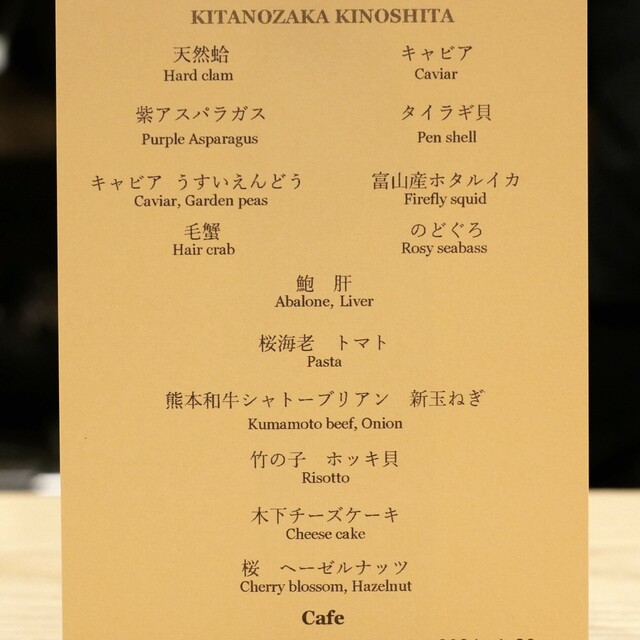 KITANOZAKA KINOSHITA
天然蛤
Hard clam
キャビア
Caviar
紫アスパラガス
Purple Asparagus
タイラギ貝
Pen shell
キャビア うすいえんどう
Caviar, Garden peas
富山産ホタルイカ
Firefly squid
毛蟹
Hair crab
のどぐろ
Rosy seabass
鮑 肝
Abalone, Liver
桜海老 トマト
Pasta
熊本和牛シャトーブリアン 新玉ねぎ
Kumamoto beef, Onion
竹の子 ホッキ貝
Risotto
木下チーズケーキ
Cheese cake
桜 ヘーゼルナッツ
Cherry blossom, Hazelnut
Cafe